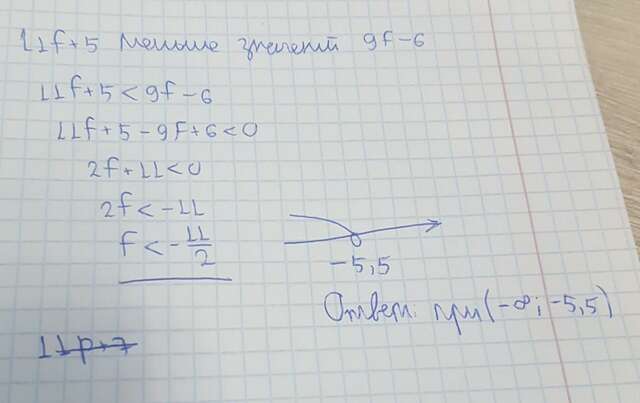 11f+5 меньше значений 9f-6
11f+5<9f-6
11f+5-9f+6<0
2f+11<0
2f<-11
f<-11/2
-5,5
Ответ: при (-∞; -5,5)
11p+7